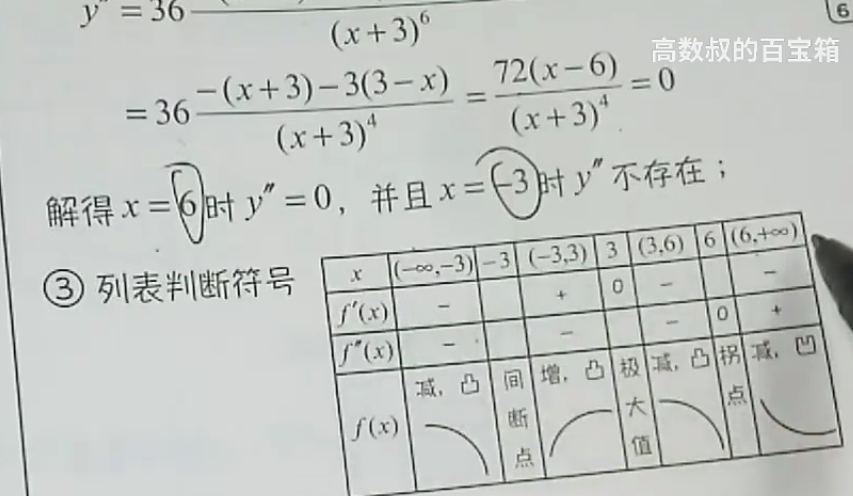 6
y″ = 36 / (x+3)⁶
高数叔的百宝箱
= 36 (−(x+3)−3(3−x))/(x+3)⁴ = 72(x−6)/(x+3)⁴ = 0
解得 x = 6 时 y″ = 0，并且 x = −3 时 y″ 不存在；
③ 列表判断符号
x (−∞,−3) −3 (−3,3) 3 (3,6) 6 (6,+∞)
f′(x) − + 0 − −
f″(x) − − − 0 +
f(x) 减，凸 间断点 增，凸 极大值 减，凸 拐点 减，凹